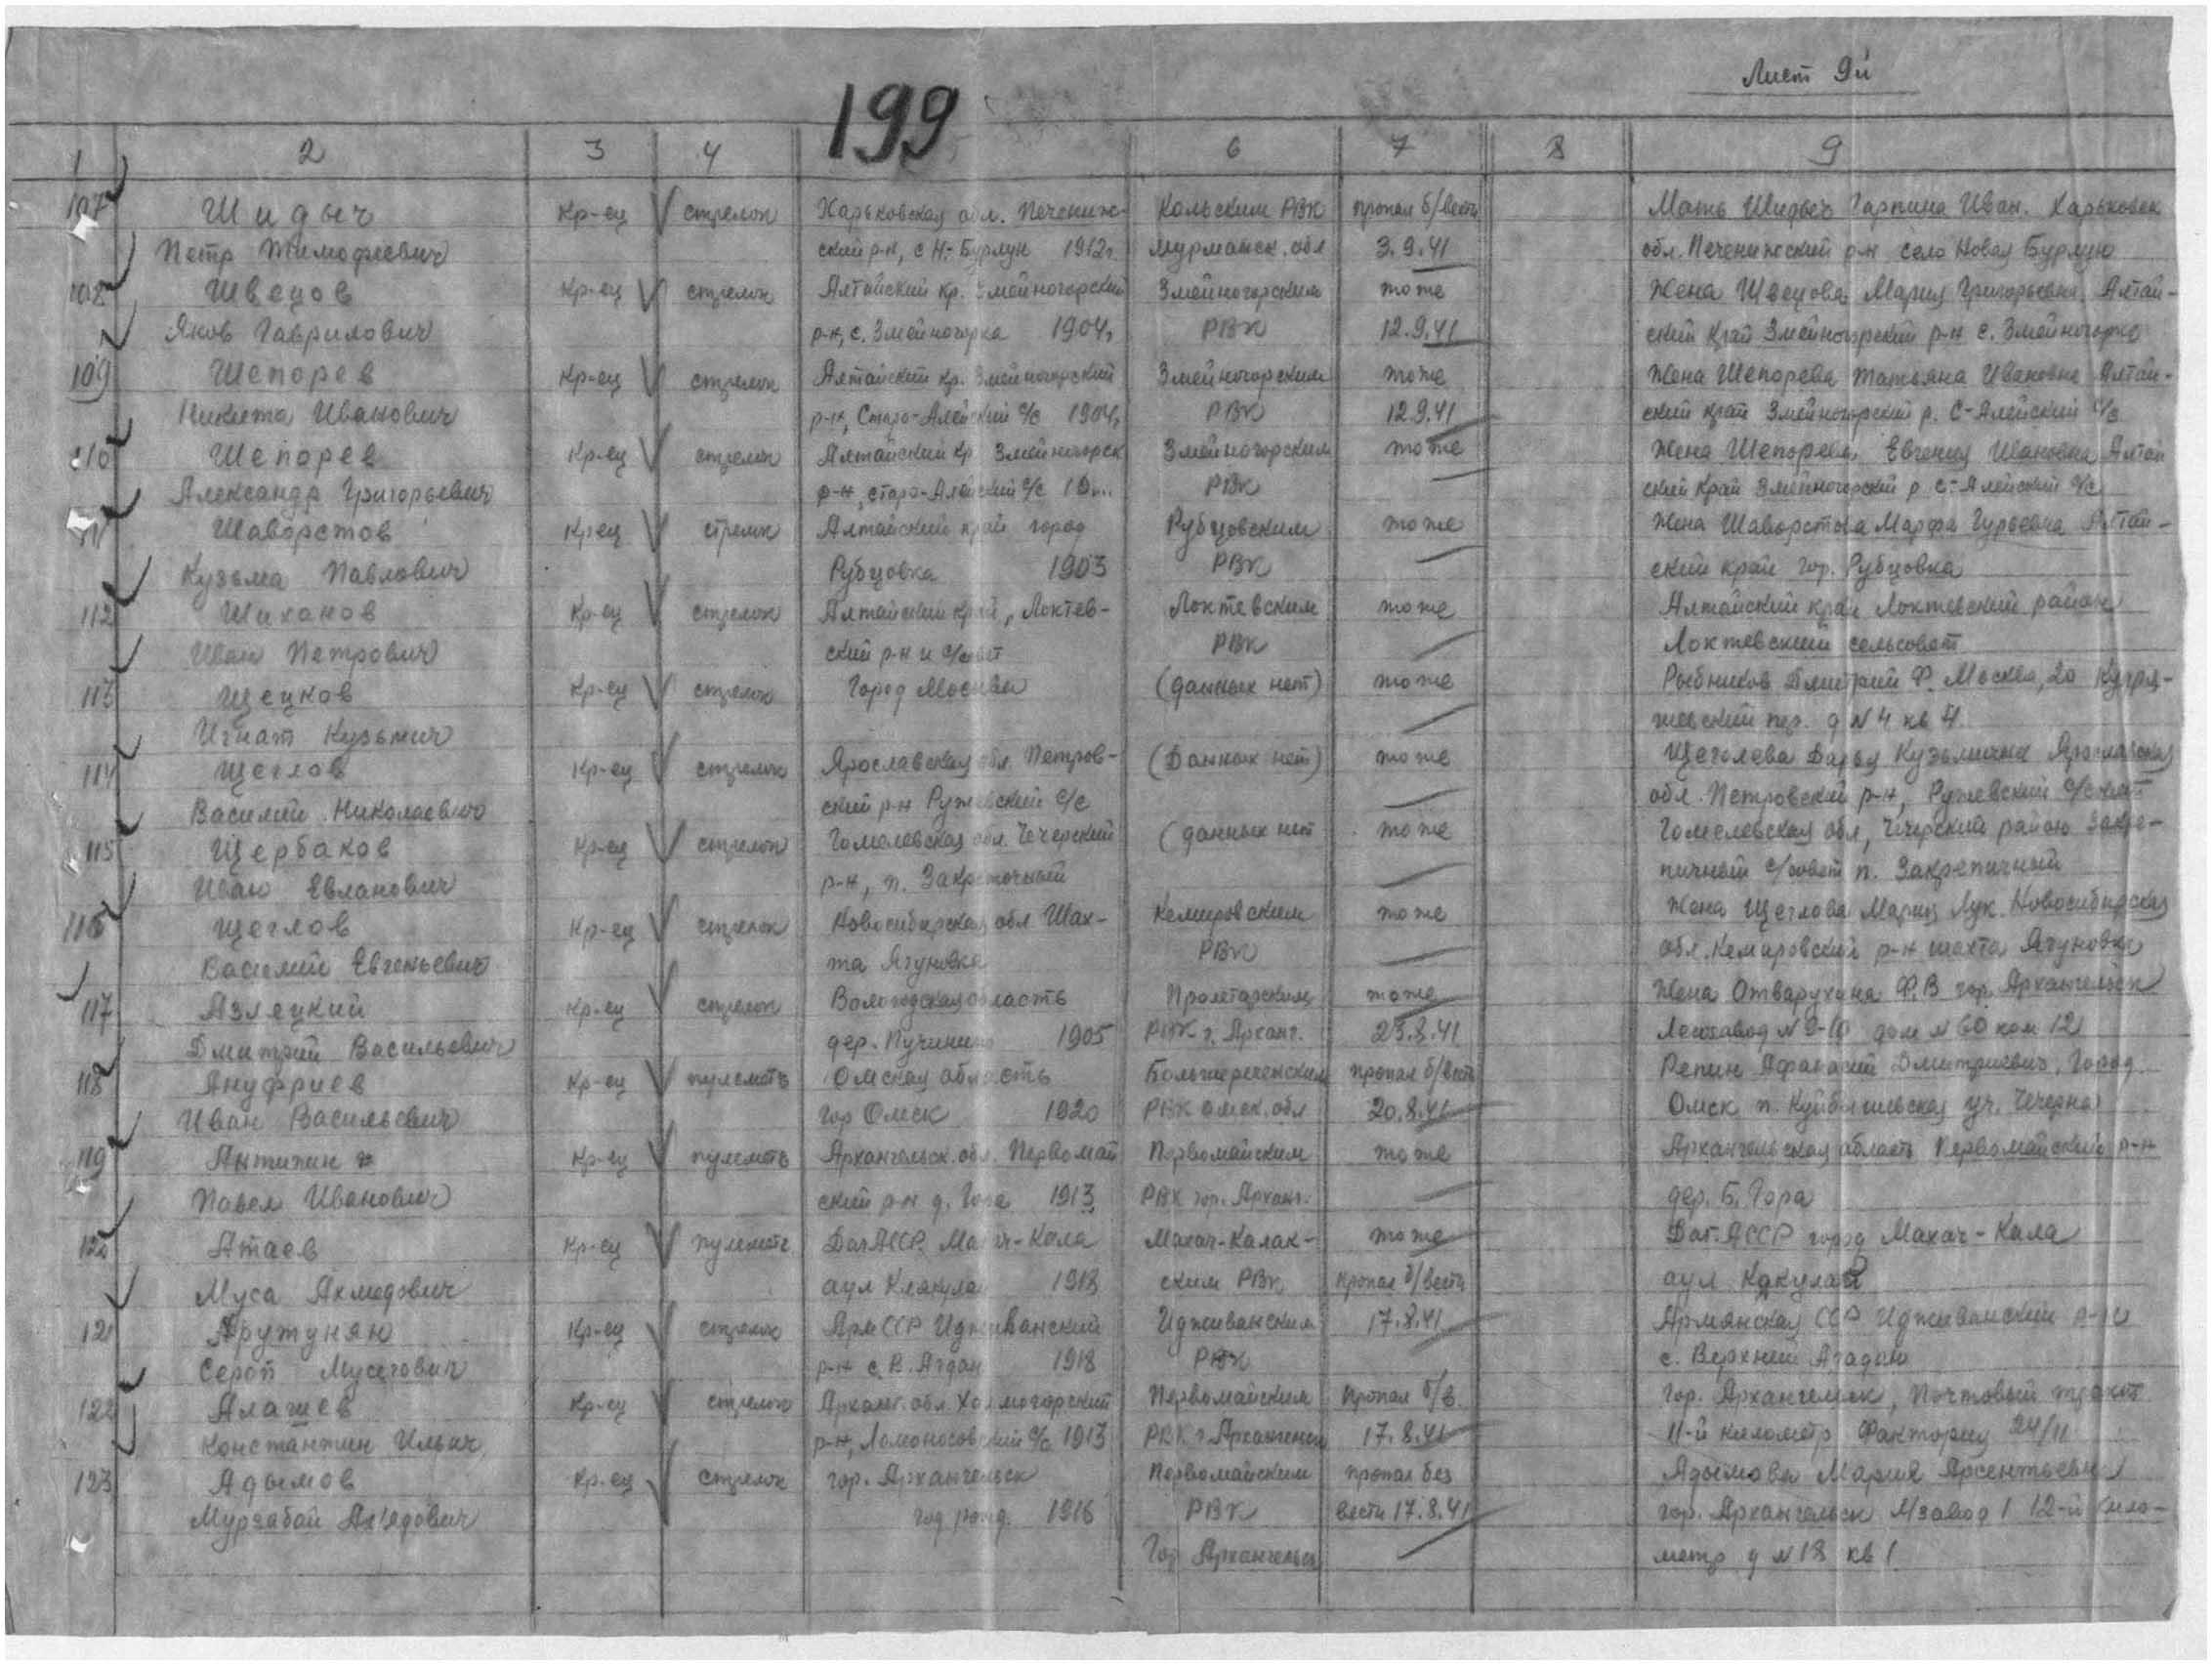 Лист 9й
199
1 2 3 4 6 7 8 9
107 Шидыч Кр-ец стрелок Харьковская обл. Печениж- Кольским РВК пропал б/вести Мать Шидыч Гарпина Иван. Харьковск
Петр Тимофеевич ский р-н, с Н-Бурлук 1912г. Мурманск. обл 3.9.41 обл. Печенижский р-н село Новая Бурлук
108 Швецов Кр-ец стрелок Алтайский кр. Змейногорский Змейногорским тоже Жена Швецова Мария Григорьевна Алтай-
Яков Гаврилович р-н, с. Змейногорка 1904г РВК 12.9.41 ский край Змейногорский р-н с. Змейногорка
109 Шепорев Кр-ец стрелок Алтайский кр. Змейногорский Змейногорским тоже Жена Шепорева Татьяна Ивановна Алтай-
Никита Иванович р-н, Старо-Алейский с/с 1904г РВК 12.9.41 ский край Змейногорский р. С-Алейский с/с
110 Шепорев Кр-ец стрелок Алтайский кр Змейногорск Змейногорским тоже Жена Шепорева Евгения Ивановна Алтай
Александр Григорьевич р-н, старо-Алейский с/с РВК ский край Змейногорский р с-Алейский с/с
Шаворстов Кр-ец стрелок Алтайский край город Рубцовским тоже Жена Шаворстова Марфа Гурьевна Алтай-
Кузьма Павлович Рубцовка 1903 РВК ский край гор. Рубцовка
112 Шиханов Кр-ец стрелок Алтайский край, Локтев- Локтевским тоже Алтайский край Локтевский район
Иван Петрович ский р-н и с/совет РВК Локтевский сельсовет
113 Щецков Кр-ец стрелок Город Москва (данных нет) тоже Рыбников Дмитрий Ф. Москва, 20
Игнат Кузьмич жевский пер. д N 4 кв 4.
114 Щеглов Кр-ец стрелок Ярославская обл. Петров- (Данных нет) тоже Щеголева Дарья Кузьминична Ярославская
Василий Николаевич ский р-н Ружевский с/с обл. Петровский р-н, Ружевский с/совет
115 Щербаков Кр-ец стрелок Гомелевская обл. Чечерский (данных нет тоже Гомелевская обл, Чечерский район Закре-
Иван Евланович р-н, п. пичный с/совет п. Закрепичный
116 Щеглов Кр-ец стрелок Новосибирская обл Шах- Кемировским тоже Жена Щеглова Мария Лук. Новосибирская
Василий Евгеньевич та Ягуновка РВК обл. Кемировский р-н шахта Ягуновка
117 Азлецкий Кр-ец стрелок Вологодская область Пролетарским тоже Жена Отварухина Ф.В гор. Архангельск
Дмитрий Васильевич дер. Пучинино 1905 РВК г. Арханг. 23.8.41 Лесозавод N 9-10 дом N 60 ком 12
118 Ануфриев Кр-ец пулеметч Омская область Большереченским пропал б/вести Репин Афанасий Дмитриевич, Город
Иван Васильевич гор Омск 1920 РВК Омск. обл 20.8.41 Омск п. Куйбышевская
119 Антипин Кр-ец пулеметч Архангельск. обл. Первомай Первомайским тоже Архангельская область Первомайский р-н
Павел Иванович ский р-н д. Гора 1913 РВК гор. Арханг. дер. Б. Гора
120 Атаев Кр-ец пулеметч ДагАССР Махач-Кала Махач-Калак- тоже Даг. АССР город Махач-Кала
Муса Ахмедович аул 1918 ским РВК пропал б/вести аул
121 Арутунян Кр-ец стрелок АрмССР Иджеванский Идживанским 17.8.41 Армянская ССР Идживанский р-н
Сероп Мусегович р-н с. В. Агдан 1918 РВК с. Верхний Агадан
122 Алашев Кр-ец стрелок Арханг. обл. Холмогорский Первомайским пропал б/в. гор. Архангельск, Почтовый тракт
Константин Ильич р-н, Ломоносовский с/с 1913 РВК г. Архангельск 17.8.41 11-й километр Фактория 24/11
123 Адымов Кр-ец стрелок гор. Архангельск Первомайским пропал без Адымова Мария Арсентьевна
Мурзабай год рожд. 1916 РВК вести 17.8.41 гор. Архангельск М/завод 1 12-й кило-
Гор Архангельск метр д N 18 кв 1